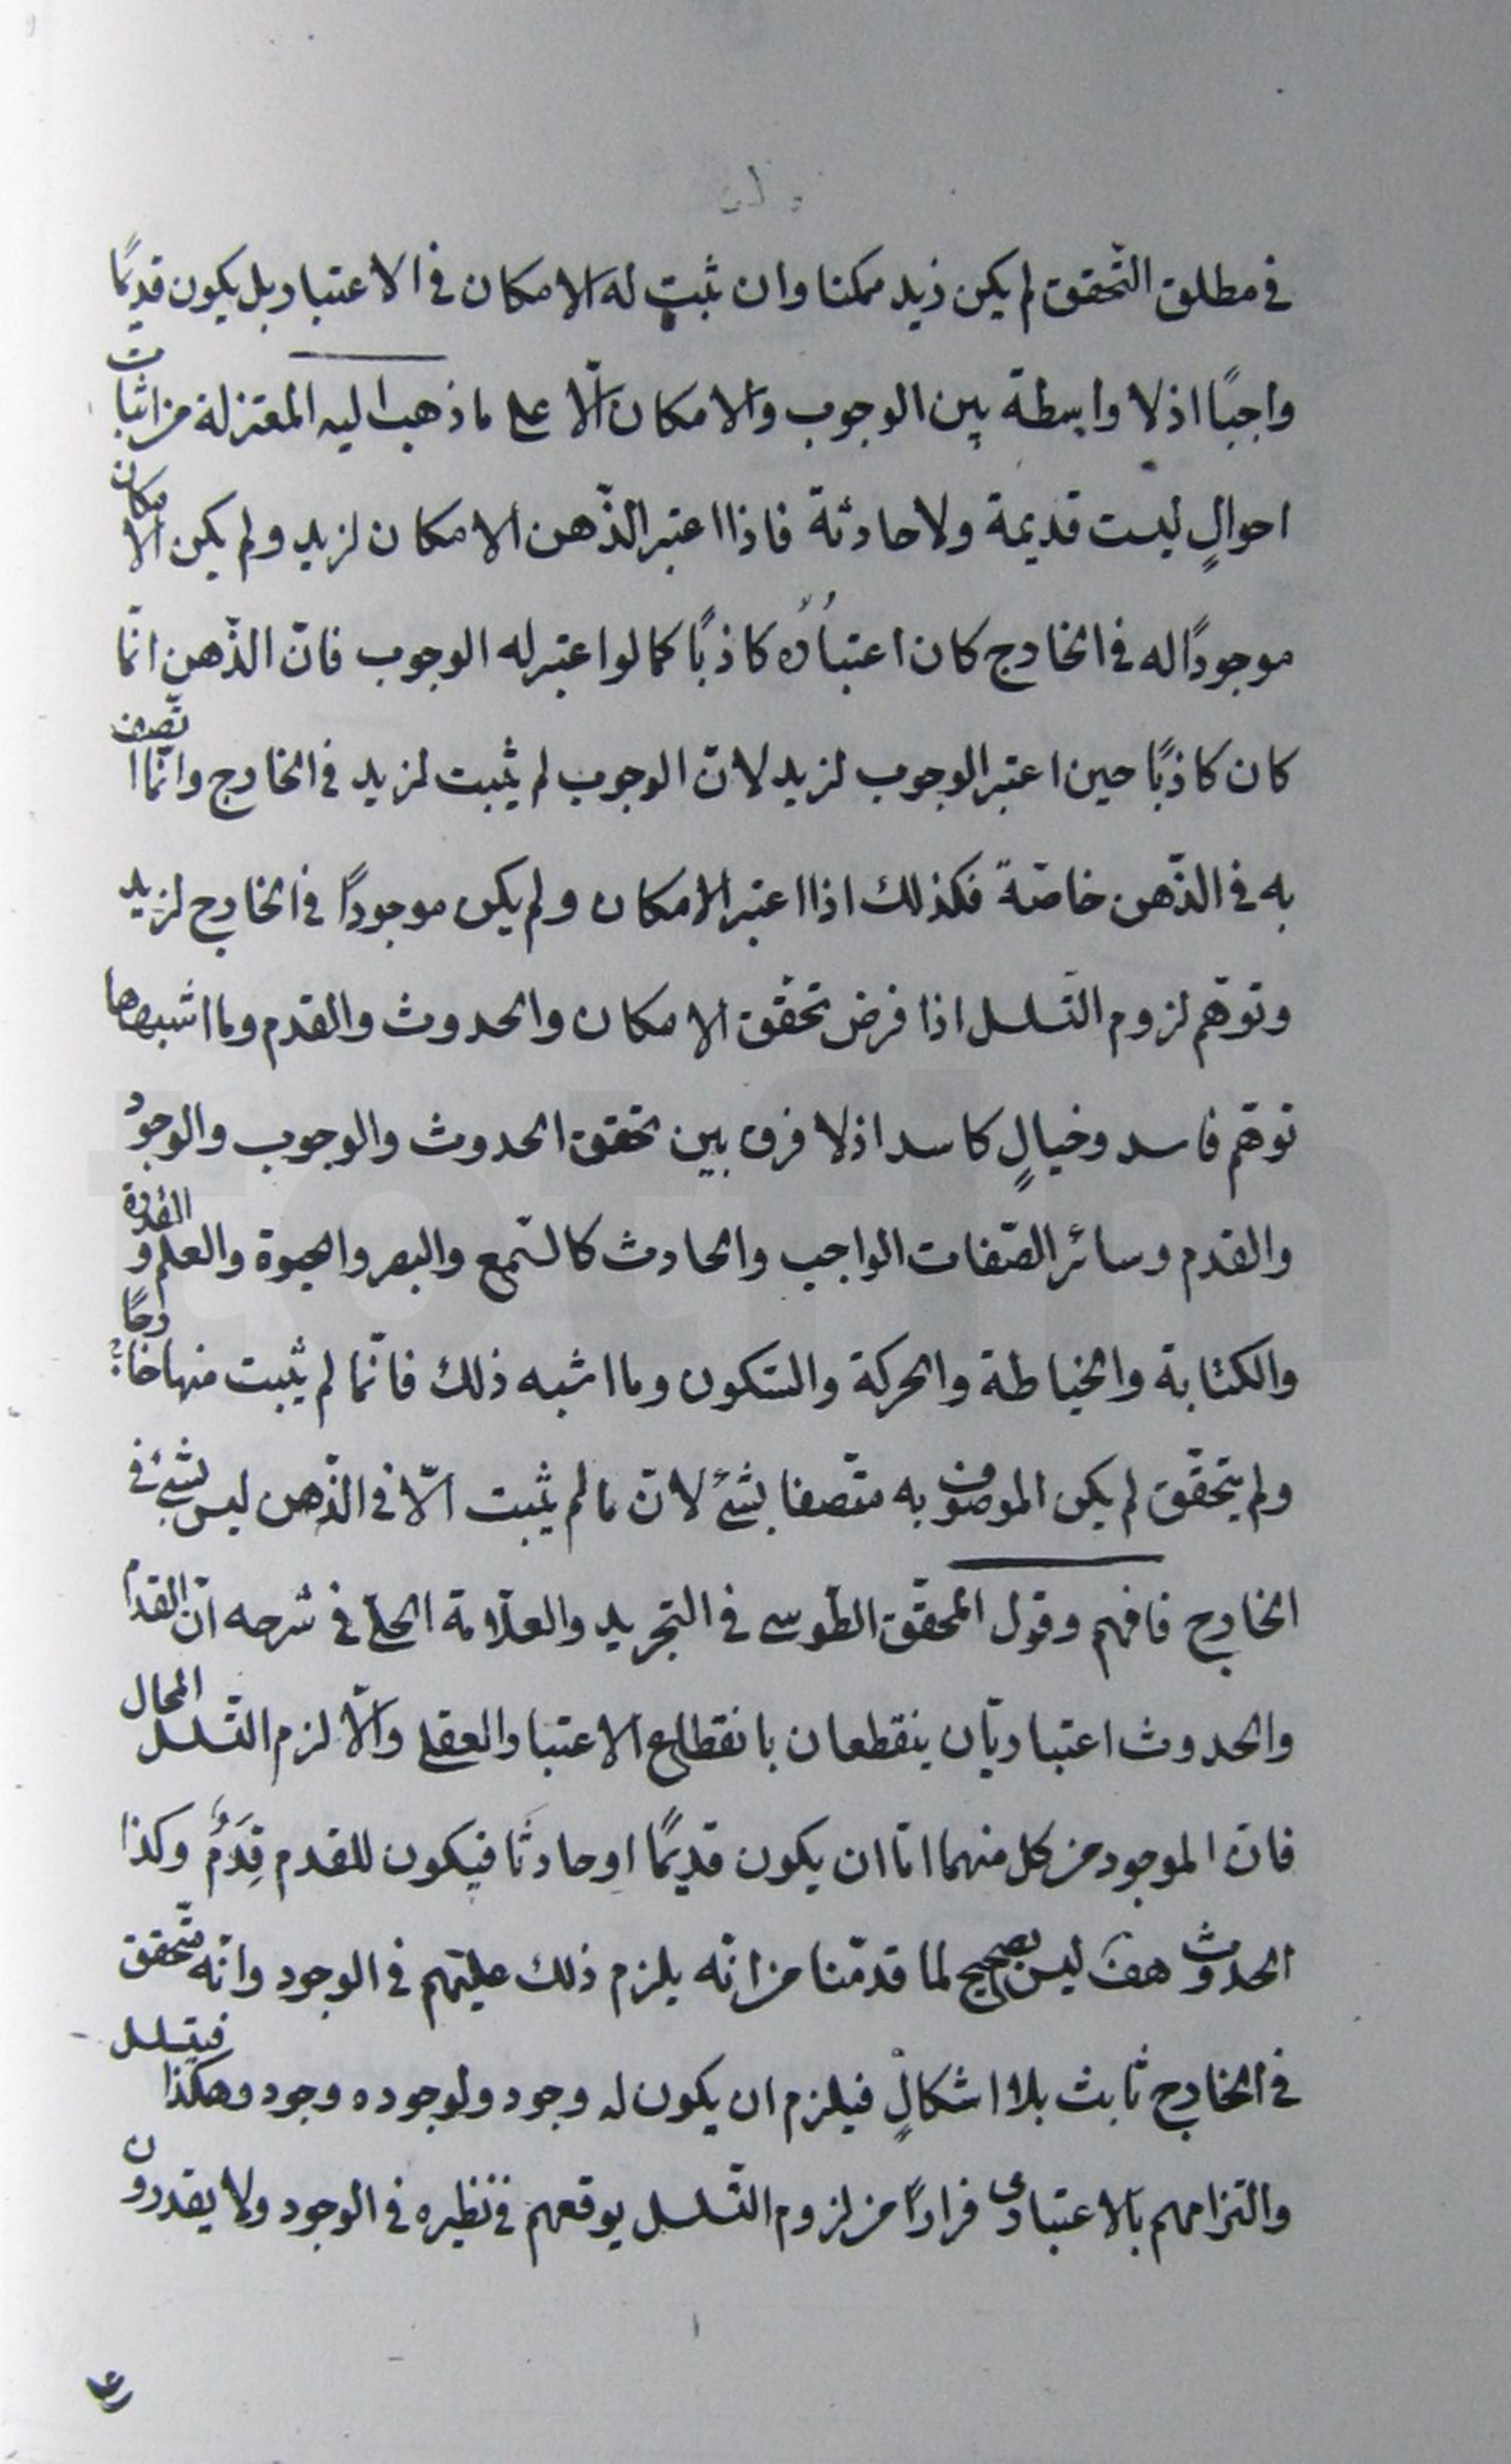 في مطلق التّحقق لم يكن زيد ممكنا وان ثبت له الامكان في الاعتبار بل يكون قديمًا
واجبًا اذ لا واسطة بين الوجوب والامكان الّا على ما ذهب اليه المعتزلة من اثبات
احوالٍ ليست قديمة ولا حادثة فاذا اعتبر الذّهن الامكان لزيد ولم يكن الامكان
موجودًا له في الخارج كان اعتبارُه كاذبًا كما لو اعتبر له الوجوب فانّ الذّهن انّما
كان كاذبًا حين اعتبر الوجوب لزيد لانّ الوجوب لم يثبت لزيد في الخارج وانّما اتّصف
به في الذّهن خاصّة فكذلك اذا اعتبر الامكان ولم يكن موجودًا في الخارج لزيد
وتوهّم لزوم التّسلسل اذا فرض تحقّق الامكان والحدوث والقدم وما اشبهها
توهّم فاسد وخيالٍ كاسد اذ لا فرق بين تحقق الحدوث والوجوب والوجود
والقدم وسائر الصّفات الواجب والحادث كالسّمع والبصر والحيوة والعلم والقدرة
والكتابة والخياطة والحركة والسّكون وما اشبه ذلك فانّما لم يثبت منها خارجًا
ولم يتحقّق لم يكن الموصوف به متّصفا بشئ لانّ ما لم يثبت الّا في الذّهن ليس بشئ في
الخارج فافهم وقول المحقّق الطّوسي في التجريد والعلّامة الحلي في شرحه انّ القدم
والحدوث اعتباريّان ينقطعان بانقطاع الاعتبار العقلي والّا لزم التّسلسل المحال
فان الموجود من كل منهما امّا ان يكون قديمًا او حادثًا فيكون للقدم قِدَمٌ وكذا
الحدوث هف ليس بصحيح لما قدّمنا من انّه يلزم ذلك عليهم في الوجود وانّه متحقق
في الخارج ثابت بلا اشكالٍ فيلزم ان يكون له وجود ولوجوده وجود وهكذا فيتسلسل
والتزامهم بالاعتباري فرارًا من لزوم التّسلسل يوقعهم في نظيره في الوجود ولا يقدرون